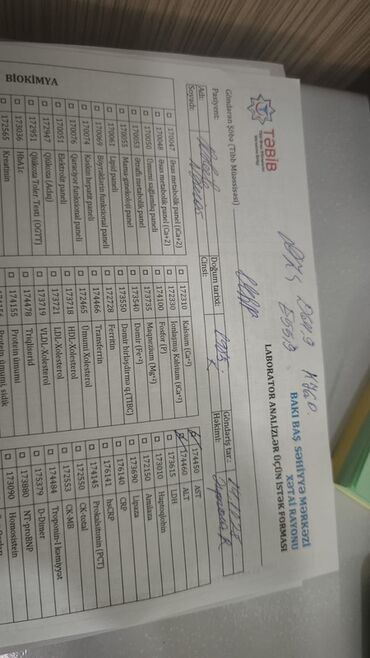 TƏBİB
BAKI BAŞ SƏHİYYƏ MƏRKƏZİ
XƏTAİ RAYONU
LABORATOR ANALİZLƏR ÜÇÜN İSTƏK FORMASI
Göndərən Şöbə (Tibb Müəssisəsi)
Pasiyent:
Adı:
Soyadı:
Doğum tarixi:
Cinsi:
Göndəriş tar.:
Həkimi:
BİOKİMYA
170047 Əsas metabolik panel (iCa+2)
170048 Əsas metabolik panel (Ca+2)
170050 Ümumi sağlamlıq paneli
170053 Ətraflı metabolik panel
170055 Mama-ginekoloji panel
170061 Lipid paneli
170069 Böyrəklərin funksional paneli
170074 Kəskin hepatit paneli
170076 Qaraciyər funksional paneli
170051 Elektrolit paneli
172947 Qlükoza (Aclıq)
172951 Qlükoza Toler. Testi (OGTT)
173036 HbA1c
172565 Kreatinin
172310 Kalsium (Ca+2)
172330 İonlaşmış Kalsium (iCa+2)
174100 Fosfor (P)
173735 Maqnezium (Mg+2)
173540 Dəmir (Fe+2)
173550 Dəmir birləşdirmə q (TIBC)
172728 Ferritin
174466 Transferrin
172465 Ümumi Xolesterol
173718 HDL-Xolesterol
173721 LDL-Xolesterol
173719 VLDL-Xolesterol
174478 Triqliserid
174155 Protein ümumi
Protein ümumi, sidik
174450 AST
174460 ALT
173615 LDH
173010 Haptoqlobin
172150 Amilaza
173690 Lipaza
176140 CRP
176141 hsCRP
174145 Prokalsitonin (PCT)
172550 CK-total
172553 CK-MB
174484 Troponin-I kəmiyyət
175379 D-Dimer
173880 NT-proBNP
173090 Homosistein